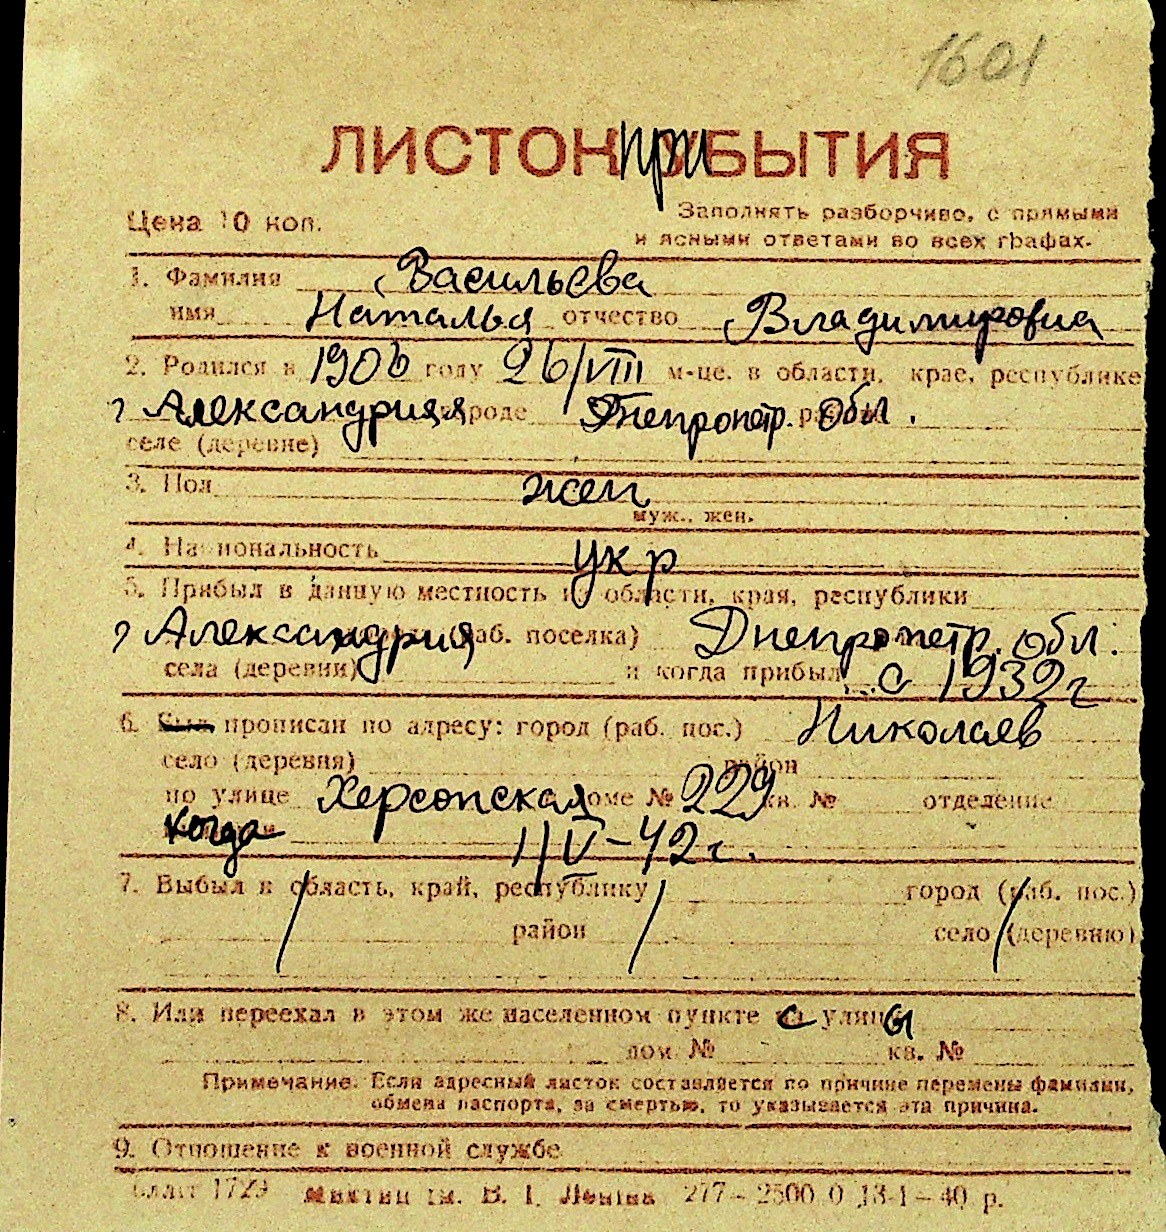 1601
ЛИСТОК прибытия
Цена 10 коп.
Заполнять разборчиво, с прямыми
и ясными ответами во всех графах.
1. Фамилия Васильева
имя Наталья отчество Владимировна
2. Родился в 1906 году 26/VIII м-це. в области, крае, республике
г Александрия городе Днепропетр. обл.
селе (деревне)
3. Пол жен
муж., жен.
4. Национальность укр
5. Прибыл в данную местность из области, края, республики
г Александрия (раб. поселка) Днепропетр. обл.
села (деревни) и когда прибыл с 1932 г
6. Был прописан по адресу: город (раб. пос.) Николаев
село (деревня) район
по улице Херсонская доме № 229 кв. № отделение
когда 1/V-42 г.
7. Выбыл в область, край, республику город (раб. пос.)
район село (деревню)
8. Или переехал в этом же населенном пункте с улицы
дом № кв. №
Примечание. Если адресный листок составляется по причине перемены фамилии,
обмена паспорта, за смертью, то указывается эта причина.
9. Отношение к военной службе
1729 им. В. І. Леніна 277—2500 0 13-I—40 р.